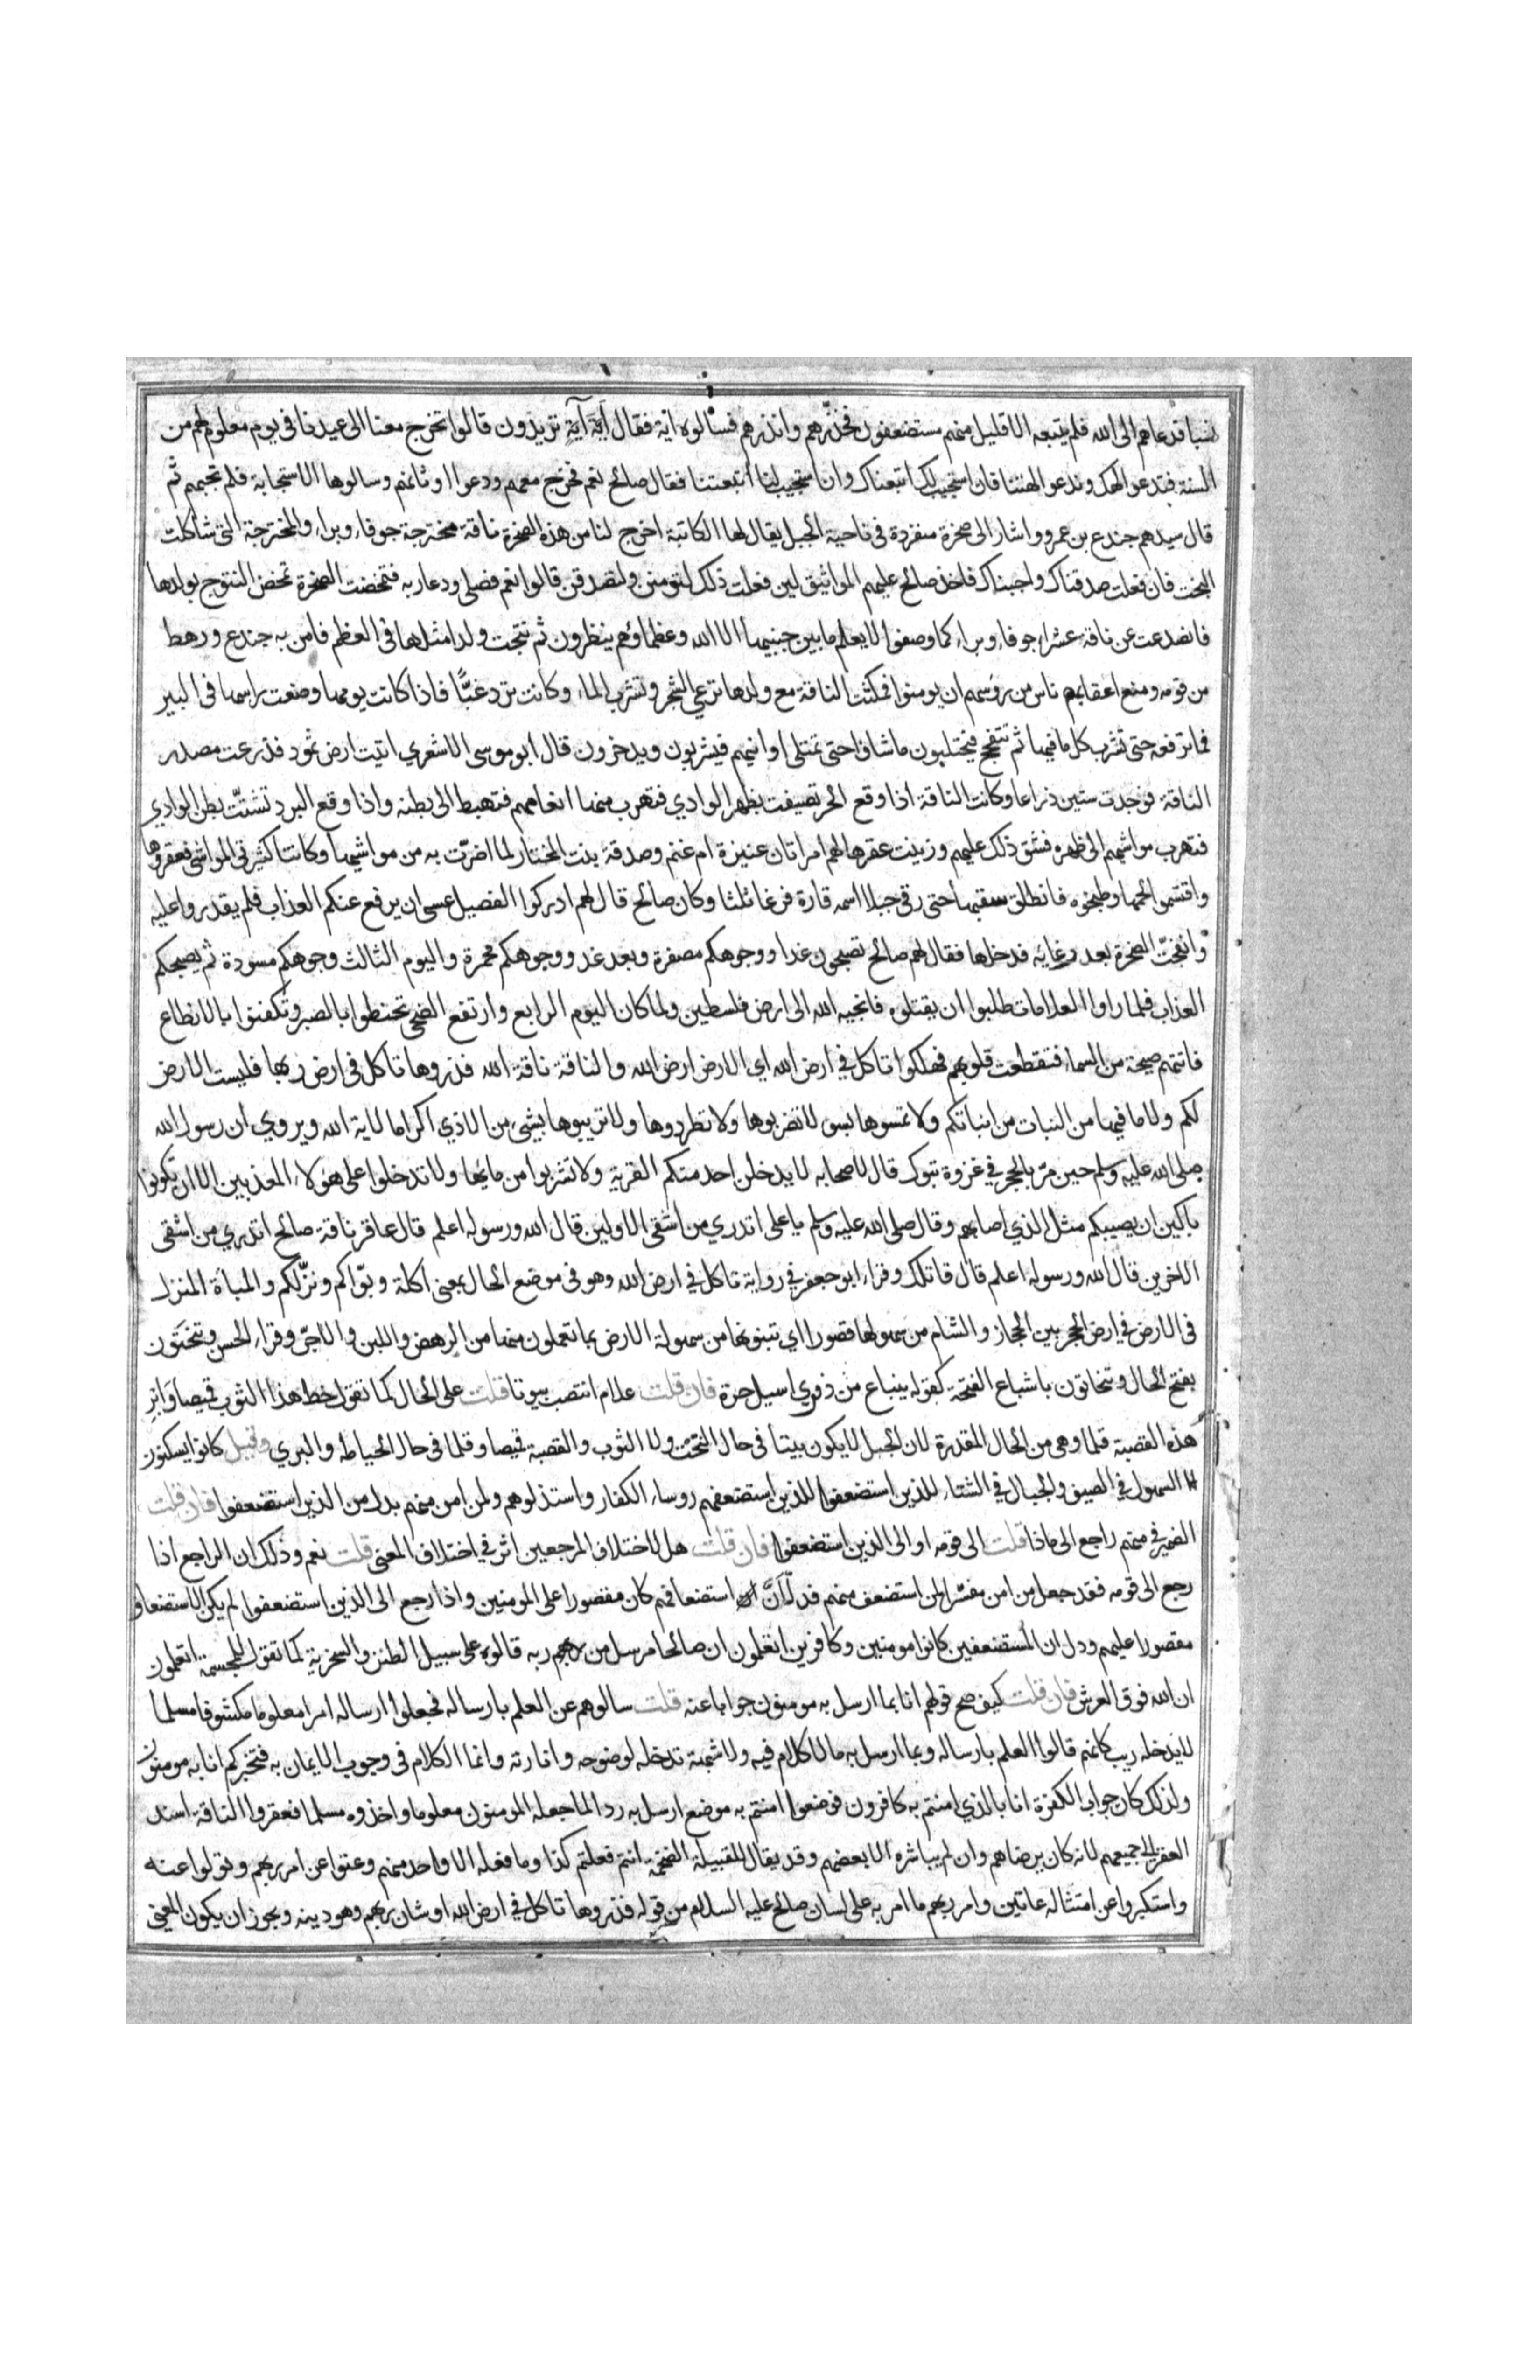 نسبا فدعاهم الى الله فلم يتبعه الا قليل منهم مستضعفون فحذّرهم وانذرهم فسألوه اية فقال أيّة آيةٍ تريدون قالوا تخرج معنا الى عيدنا في يوم معلوم لهم من
السنة فتدعو الهك وندعو الهتنا فان استجيب لك اتبعناك وان استجيب لنا اتبعتنا فقال صالح نعم فخرج معهم ودعوا اوثانهم وسالوها الاستجابة فلم تجبهم ثم
قال سيدهم جندع بن عمرو واشار الى صخرة منفردة في ناحية الجبل يقال لها الكاتبة اخرج لنا من هذه الصخرة ناقة مخترجة جوفاء وبراء والمخترجة التي شاكلت
البخت فان فعلت صدقناك واجبناك فاخذ صالح عليهم المواثيق لين فعلت ذلك لتومنن ولتصدقن قالوا نعم فصلى ودعا ربه فتمخضت الصخرة تمخض النتوج بولدها
فانصدعت عن ناقة عشراء جوفاء وبراء كما وصفوا لا يعلم ما بين جنبيها الا الله وعظماؤهم ينظرون ثم نتجت ولدا مثلها في العظم فامن به جندع ورهط
من قومه ومنع اعقابهم ناس من روسهم ان يومنوا فمكثت الناقة مع ولدها ترعى الشجر وتشرب الماء وكانت ترد غبًّا فاذا كانت يومها وضعت راسها في البير
فما ترفعه حتى تشرب كل ما فيها ثم تتفجج فيحتلبون ما شاؤا حتى تمتلى اوانيهم فيشربون ويدخرون قال ابو موسى الاشعري اتيت ارض ثمود فذرعت مصدر
الناقة فوجدت ستين ذراعا وكانت الناقة اذا وقع الحر تصيفت بظهر الوادي فتهرب منها انعامهم فتهبط الى بطنه واذا وقع البرد تشتّت بطن الوادي
فتهرب مواشيهم الى ظهره فشق ذلك عليهم وزينت عقرها لهم امراتان عنيزة ام غنم وصدقة بنت المختار لما اضرّت به من مواشيهما وكانتا كثيرتي المواشي فعقروها
واقتسموا لحمها وطبخوه فانطلق سقبها حتى رقى جبلا اسمه قارة فرغا ثلثا وكان صالح قال لهم ادركوا الفصيل عسى ان يرفع عنكم العذاب فلم يقدروا عليه
وانفجّت الصخرة بعد رغايه فدخلها فقال لهم صالح تصبحون غدا ووجوهكم مصفرة وبعد غد ووجوهكم محمرة واليوم الثالث وجوهكم مسودة ثم يصبحكم
العذاب فلما راوا العلامات طلبوا ان يقتلوه فانجيه الله الى ارض فلسطين ولما كان اليوم الرابع وارتفع الضحى تحنطوا بالصبر وتكفنوا بالانطاع
فاتتهم صيحة من السماء فتقطعت قلوبهم فهلكوا تاكل في ارض الله اي الارض ارض الله والناقة ناقة الله فذروها تاكل في ارض ربها فليست الارض
لكم ولا ما فيها من النبات من انباتكم ولا تمسوها بسوء لا تضربوها ولا تطردوها ولا تريبوها بشيء من الاذي اكراما لاية الله ويروي ان رسول الله
صلى الله عليه وسلم حين مرّ بالحجر في غزوة تبوك قال لاصحابه لا يدخلن احد منكم القرية ولا تشربوا من مايها ولا تدخلوا على هؤلاء المعذبين الا ان تكونوا
باكين ان يصيبكم مثل الذي اصابهم وقال صلى الله عليه وسلم يا على اتدري من اشقى الاولين قال الله ورسوله اعلم قال عاقر ناقة صالح اتدري من اشقى
الاخرين قال الله ورسوله اعلم قال قاتلك وقراء ابو جعفر في رواية تاكل في ارض الله وهو في موضع الحال بمعنى اكلة وبوّاكم ونزّلكم والمباة المنزل
في الارض في ارض الحجر بين الحجاز والشام من سهولها قصورا اي تبنونها من سهولة الارض بما تعملون منها من الرهص واللبن والاجرّ وقراء الحسن وتنحَتون
بفتح الحال وتنحاتون باشباع الفتحة كقوله ينباع من ذفري اسيل حرة فان قلت علام انتصب بيوتا قلت على الحال كما تقول خط هذا الثوب قميصا وابر
هذه القصبة قلما وهي من الحال المقدرة لان الجبل لا يكون بيتا في حال النحت ولا الثوب والقصبة قميصا وقلما في حال الخياطة والبري وقيل كانوا يسكنون
السهول في الصيف والجبال في الشتاء للذين استضعفوا للذين استضعفهم روساء الكفار واستذلوهم ولمن امن منهم بدل من الذين استضعفوا فان قلت
الضمير في منهم راجع الى ماذا قلت الى قومه او الى الذين استضعفوا فان قلت هل لاختلاف المرجعين اثر في اختلاف المعنى قلت نعم وذلك ان الراجع اذا
رجع الى قومه فقد جعل من امن مفسّرا لمن استضعف منهم فدلّ أنّ استضعافهم كان مقصورا على المومنين واذا رجع الى الذين استضعفوا لم يكن الاستضعاف
مقصورا عليهم ودل ان المستضعفين كانوا مومنين وكافرين اتعلمون ان صالحا مرسل من ربه قالوه على سبيل الطنز والسخرية كما تقول للمجسمة اتعلمون
ان الله فوق العرش فان قلت كيف صح قولهم انا بما ارسل به مومنون جوابا عنه قلت سالوهم عن العلم بارساله فجعلوا ارساله امرا معلوما مكشوفا مسلما
لا يدخله ريب كانهم قالوا العلم بارساله وبما ارسل به ما لا كلام فيه ولا شبهة تدخله لوضوحه وانارته وانما الكلام في وجوب الايمان به فنخبركم انا به مومنون
ولذلك كان جواب الكفرة انا بالذي امنتم به كافرون فوضعوا امنتم به موضع ارسل به ردا لما جعله المومنون معلوما واخذوه مسلما فعقروا الناقة اسند
العقر الى جميعهم لانه كان برضاهم وان لم يباشره الا بعضهم وقد يقال للقبيلة الضخمة انتم فعلتم كذا وما فعله الا واحد منهم وعتوا عن امر ربهم وتولوا عنه
واستكبروا عن امتثاله عاتين وامر ربهم ما امر به على لسان صالح عليه السلام من قوله فذروها تاكل في ارض الله او شان ربهم وهو دينه ويجوز ان يكون المعنى